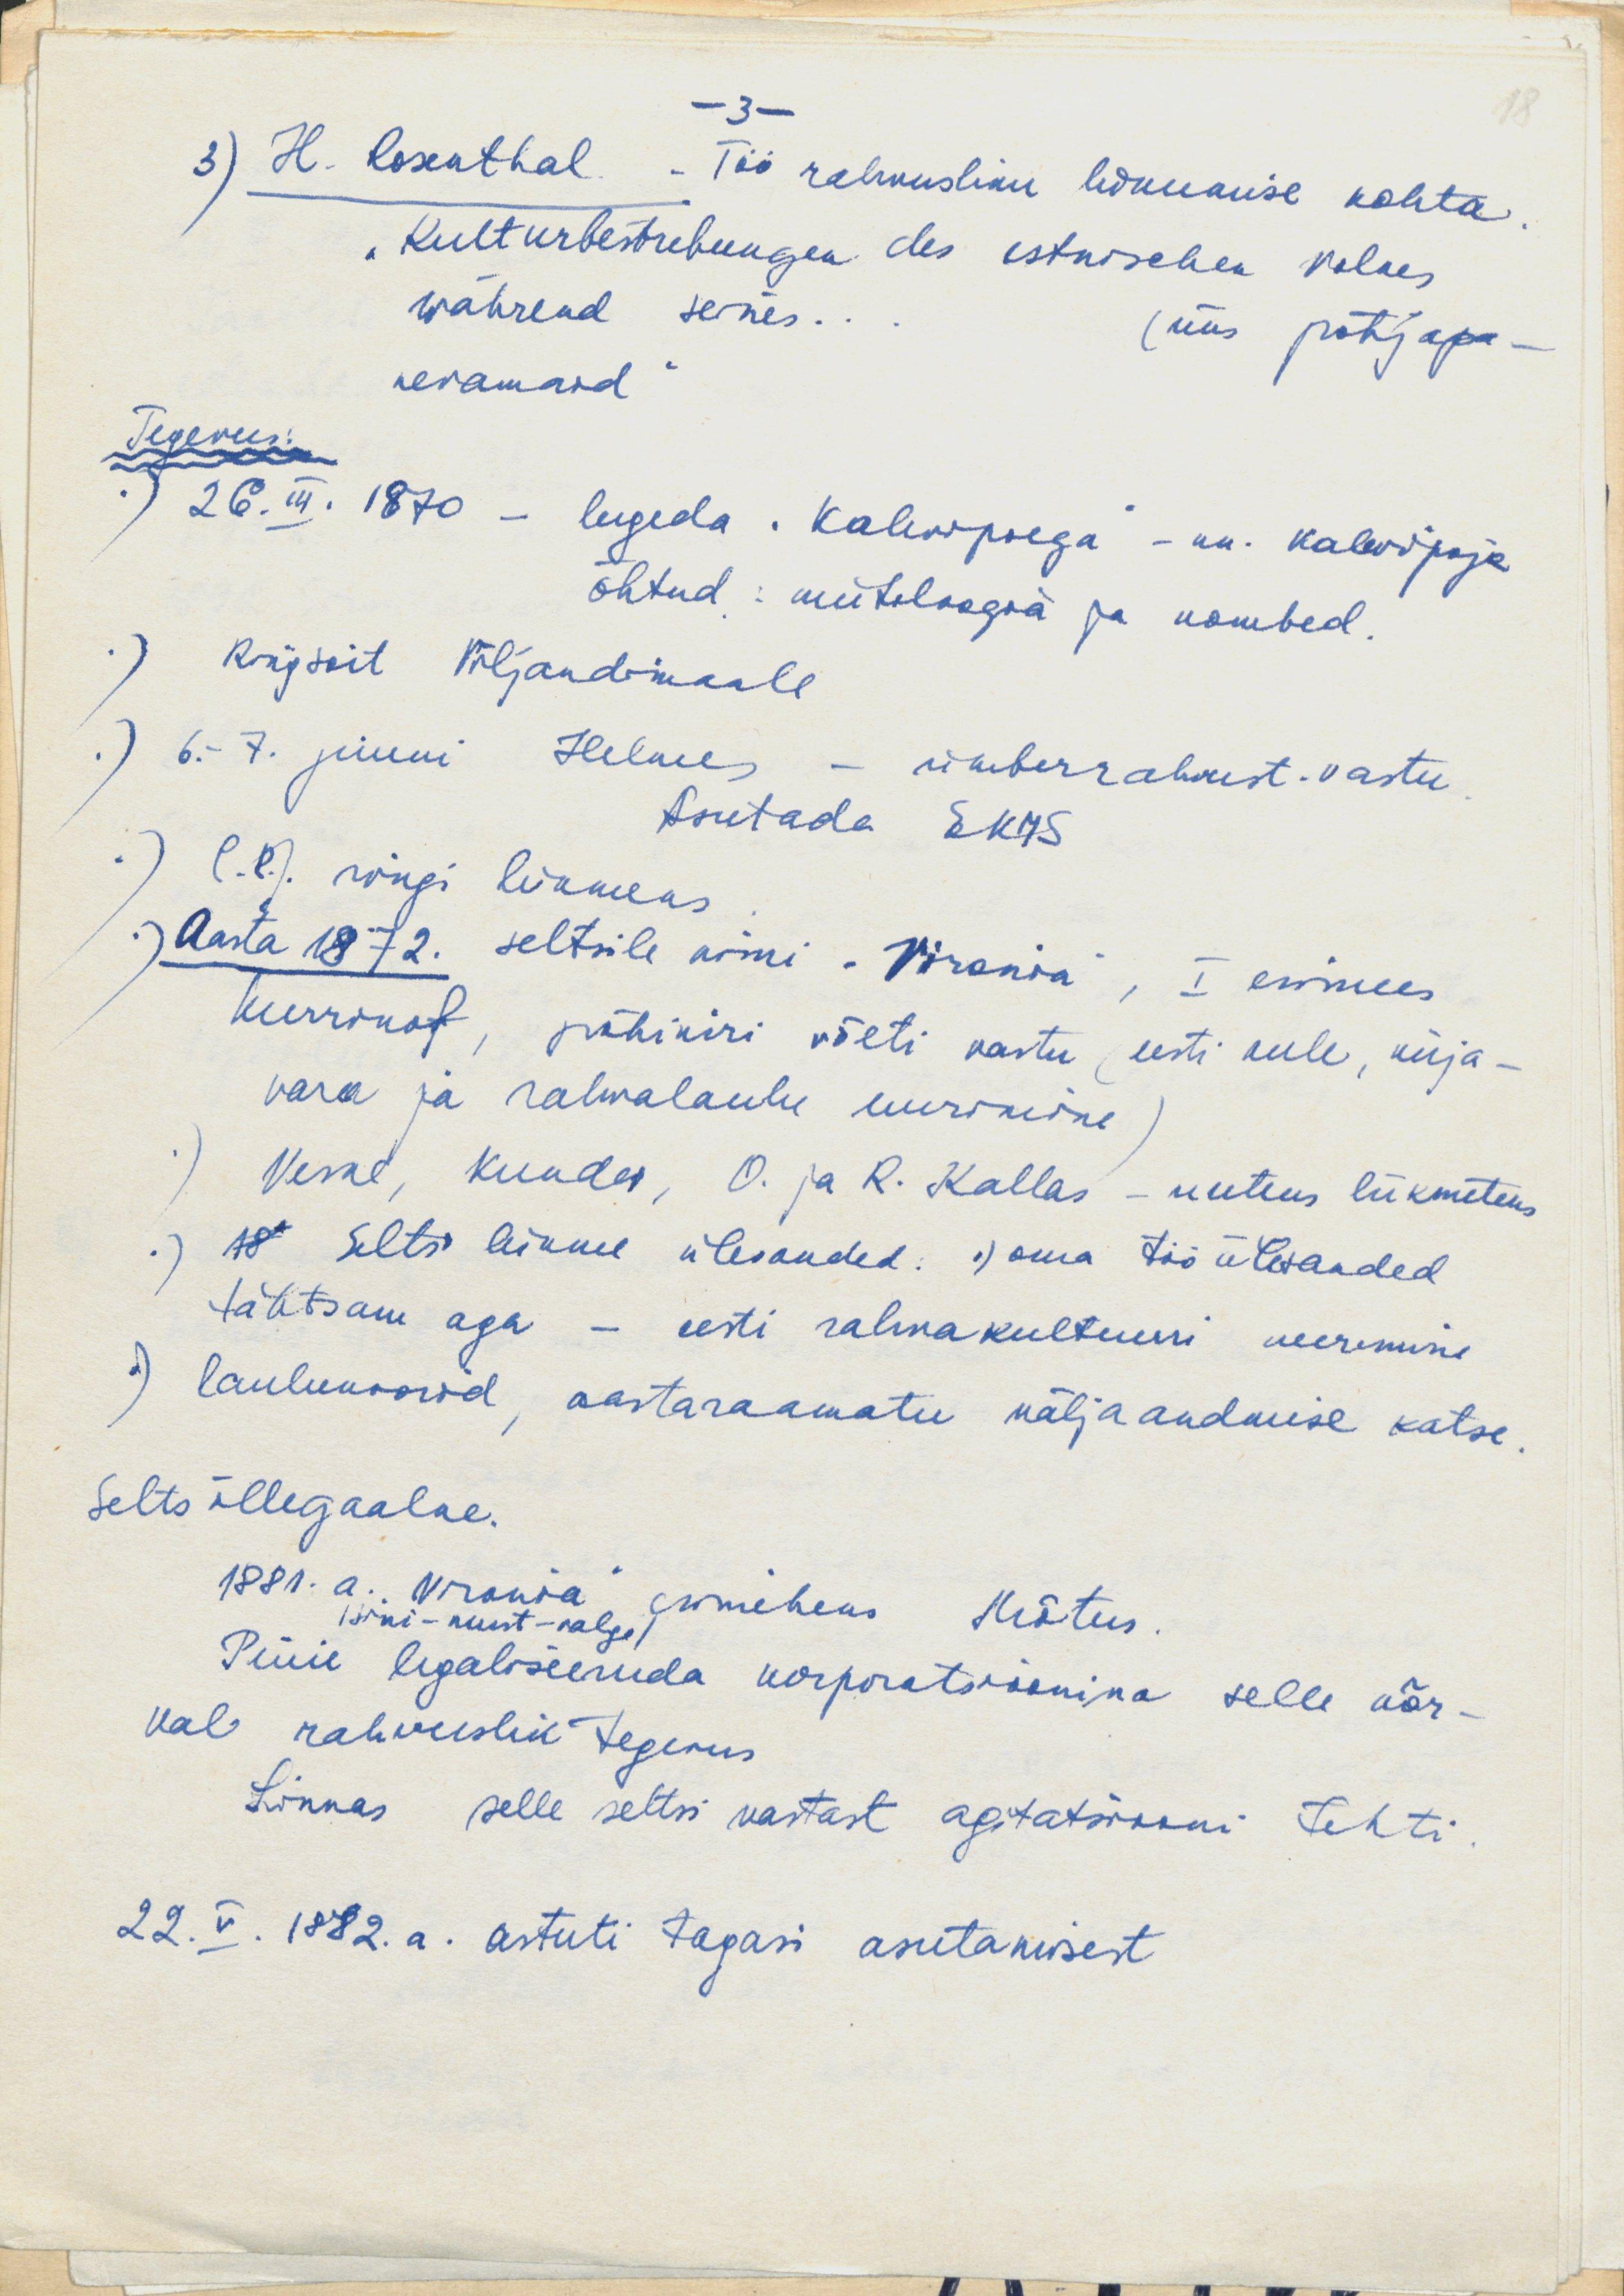 18
-3-
3) H. Rosenthal. - Töö rahvusliku liikumise kohta.
"Kulturbestrebungen des estnischen Volkes
während seines... (üks põhjapa-
nevamaid"
Tegevus:
.) 26. III. 1870 - lugeda "Kalevipoega" - nn. Kalevipoja
õhtud: mütoloogia ja kombed.
.) Ringsõit Viljandimaale
.) 6.-7. juuni Helmes - ümberrahvust. vastu.
Asutada EKMS
.) ringi liikmeks.
.) Aasta 1872. seltsile nimi "Vironia", I esimees
Kurrikof, põhikiri võeti vastu (eesti keele, kirja-
vara ja rahvalaulu uurimine)
.) Veske, Kunder, O. ja R. Kallas - uuteks liikmeteks
.) Seltsi liikme ülesanded: .) oma töö ülesanded
tähtsam aga - eesti rahvakultuuri uurimine
.) laulukoorid, aastaraamatu väljaandmise katse.
Selts illegaalne.
1881. a. "Vironia" esimeheks Mõtus.
(sini-must-valge)
Püüe legaliseeruda korporatsioonina selle kõr-
val rahvuslik tegevus
Linnas selle seltsi vastast agitatsiooni tehti.
22. V. 1882. a. astuti tagasi asutamisest